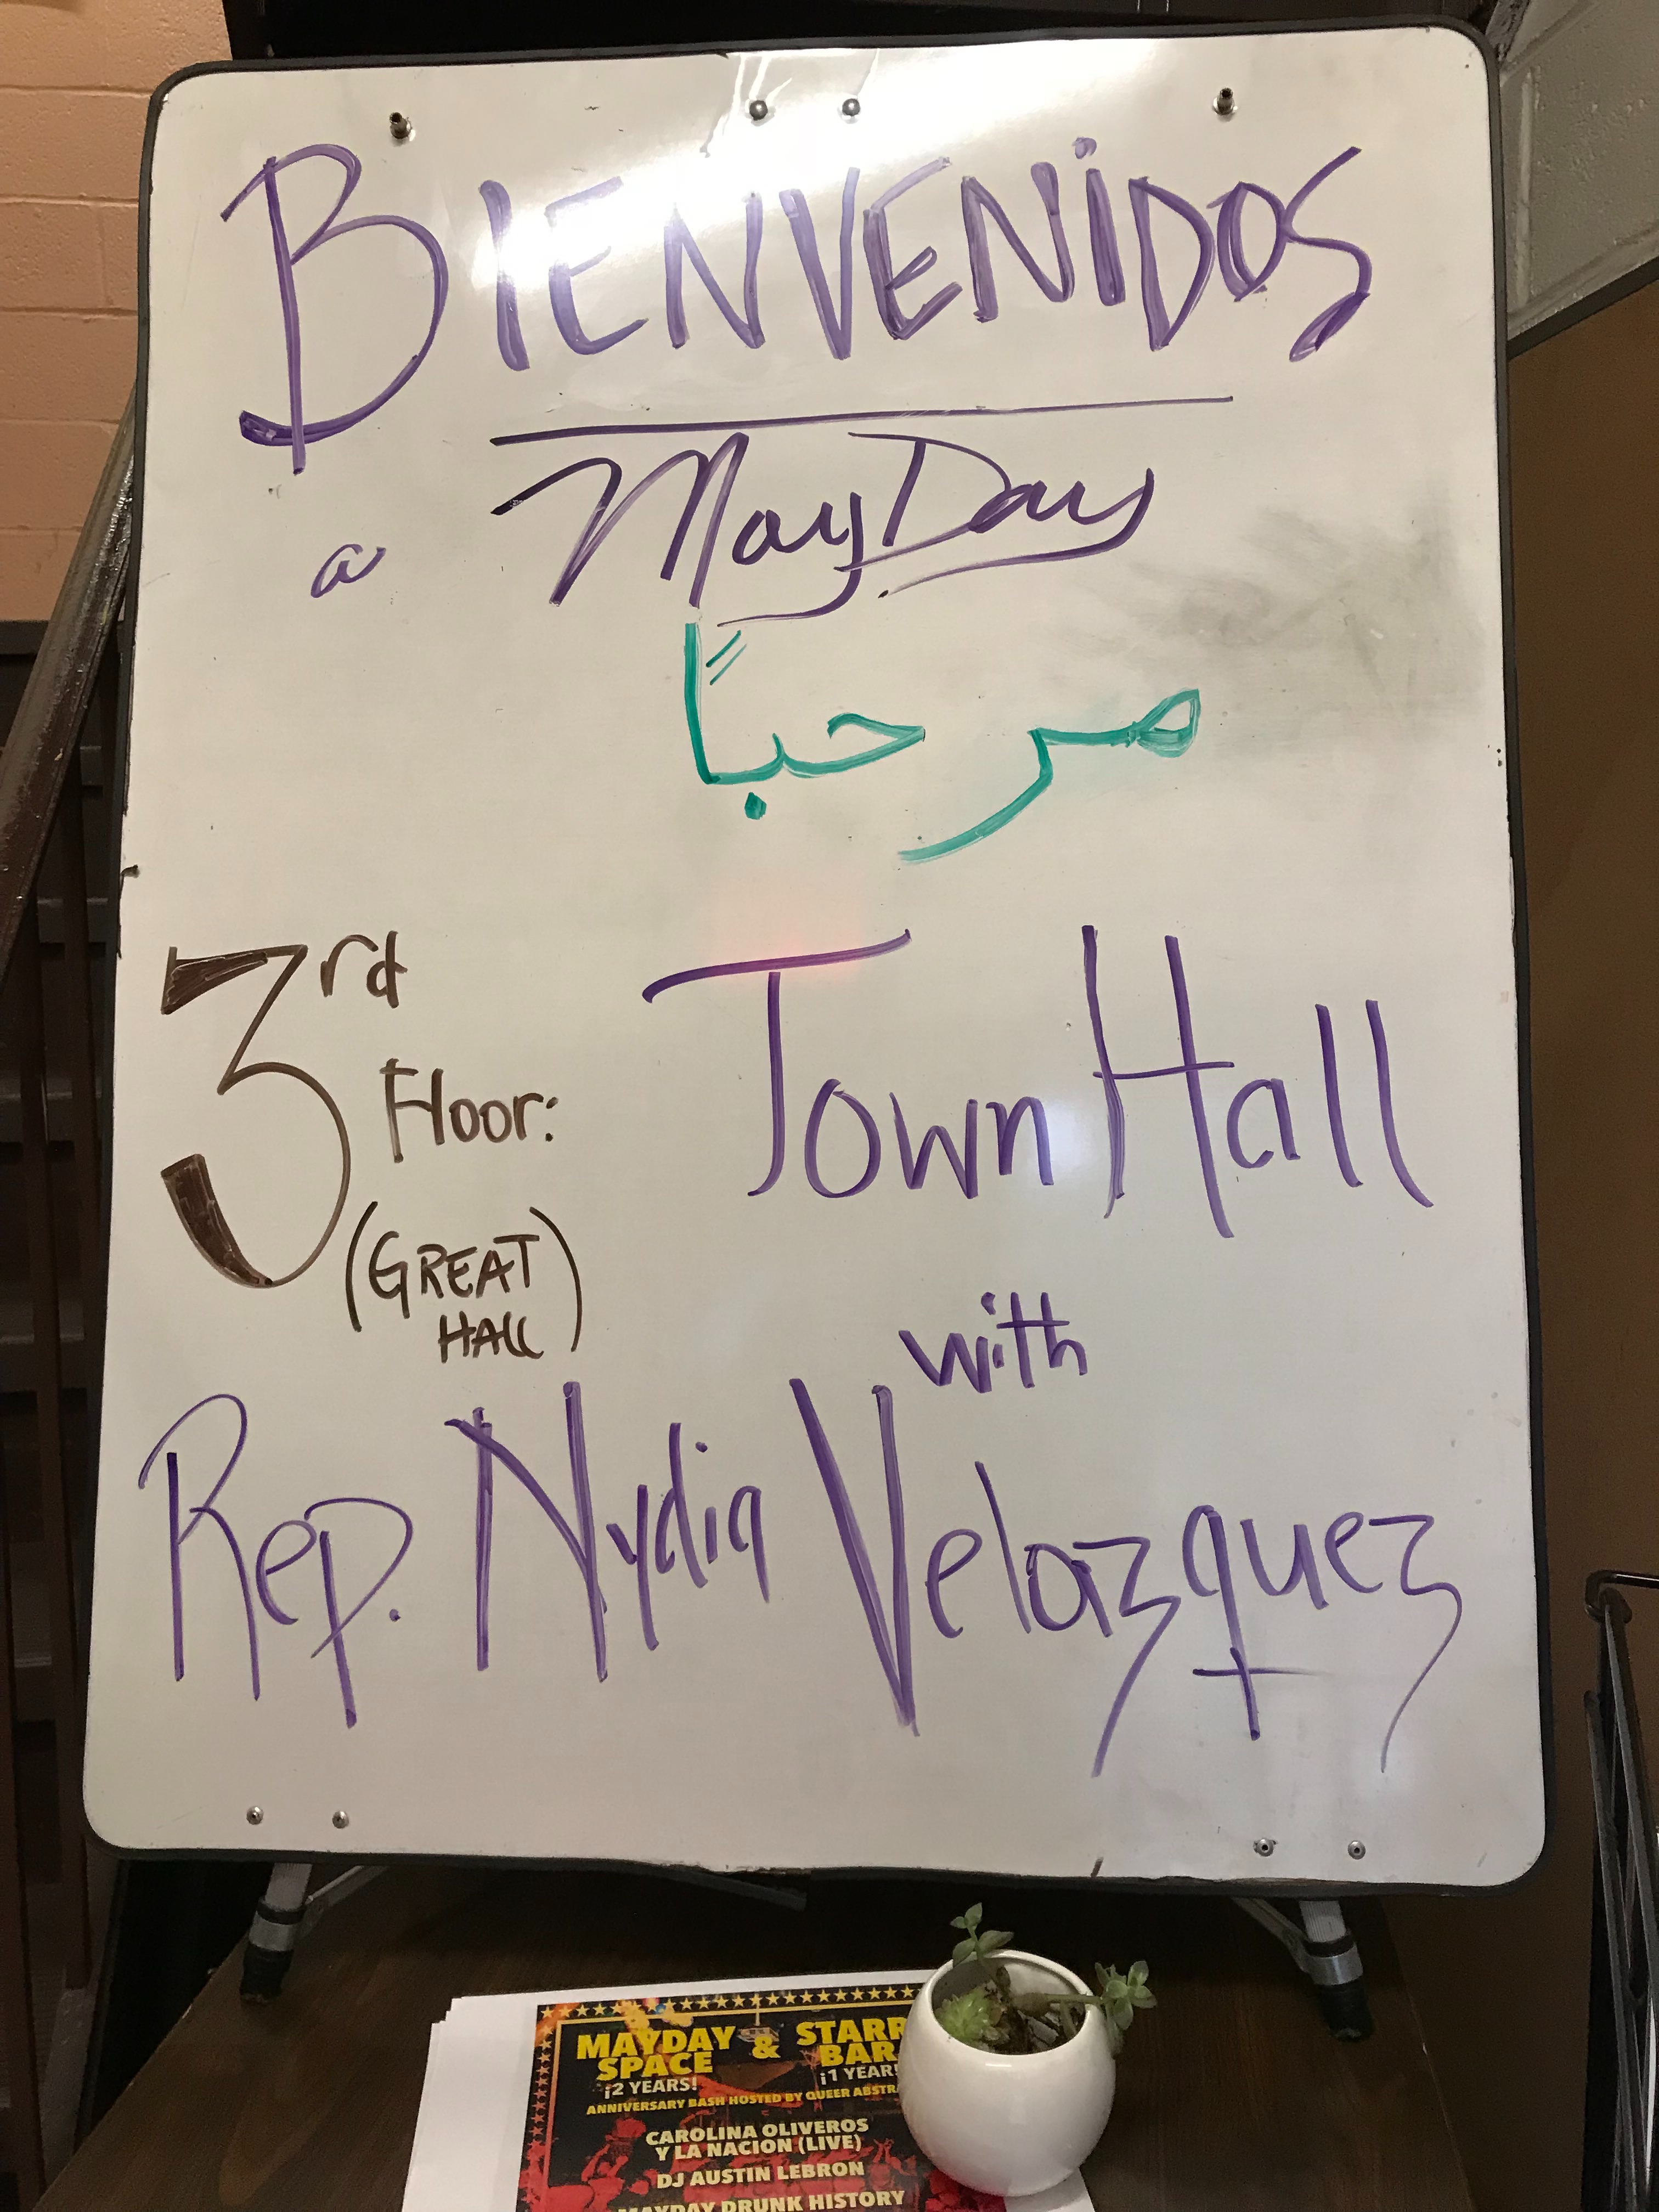 BIENVENIDOS
a MayDay
مرحباً
3rd
Floor:
(GREAT
HALL)
Town Hall
with
Rep. Nydia Velazquez
MAYDAY
SPACE
¡2 YEARS!
&
STARR
BAR
¡1 YEAR!
ANNIVERSARY BASH HOSTED BY QUEER
CAROLINA OLIVEROS
Y LA NACION (LIVE)
DJ AUSTIN LEBRON
MAYDAY DRUNK HISTORY